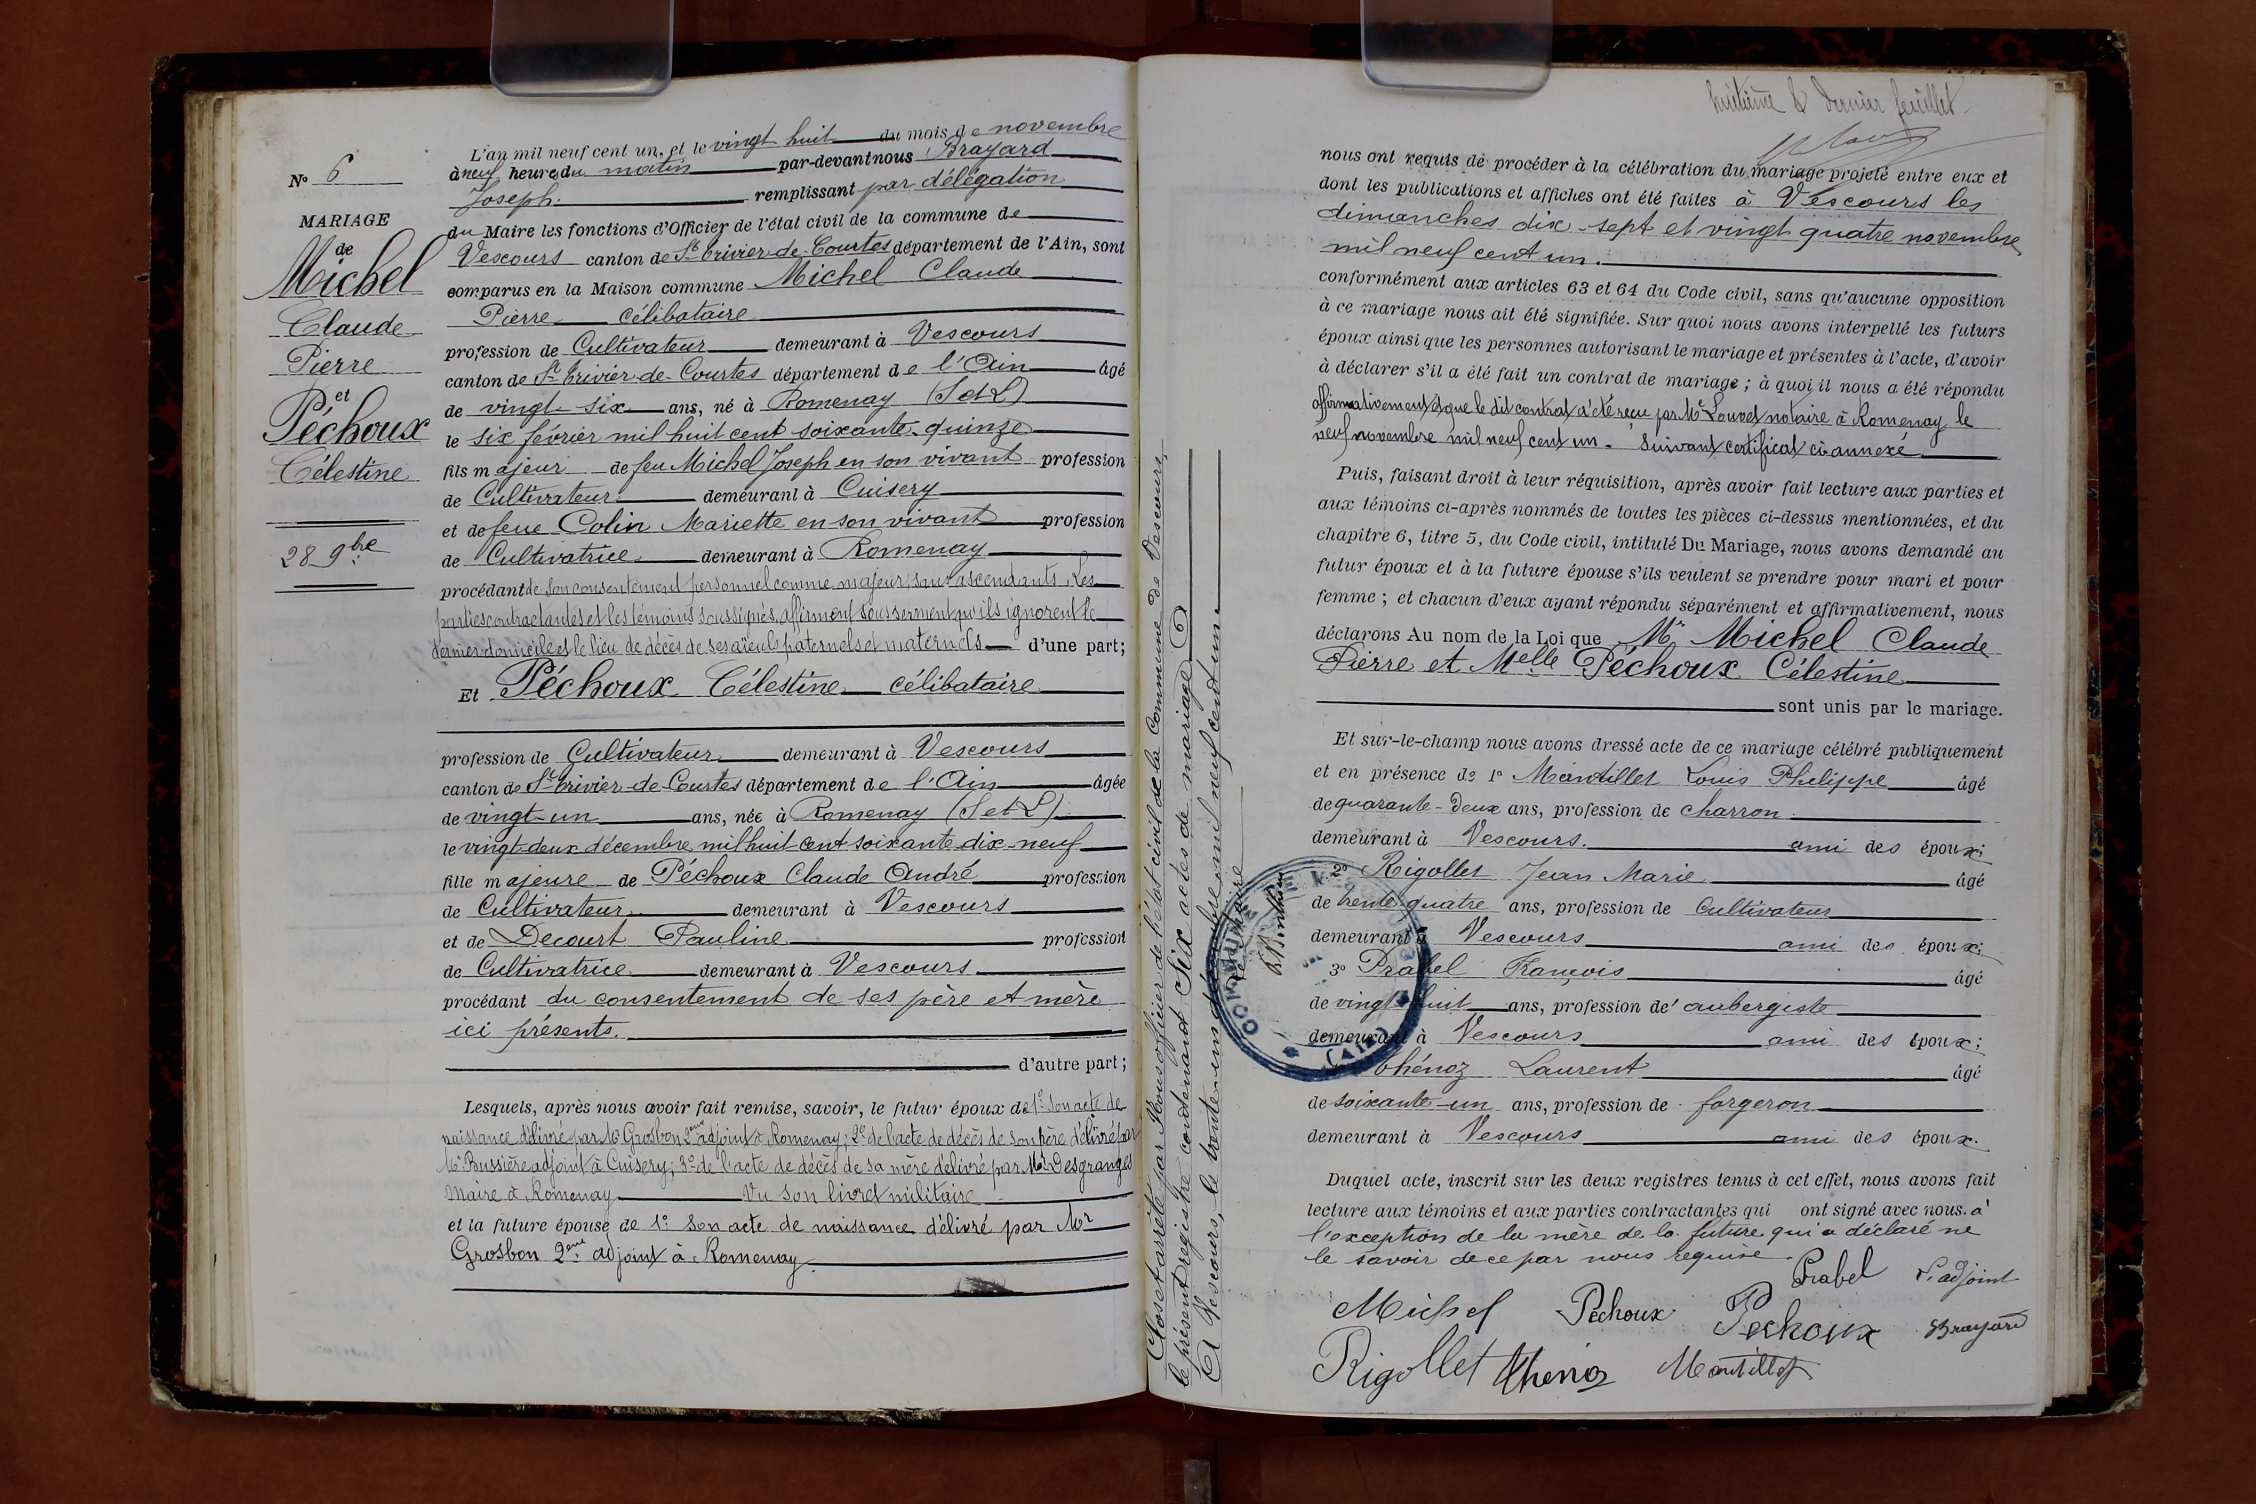 N° 6
MARIAGE
de
Michel
Claude
Pierre
et
Péchoux
Célestine
28 9bre
L'an mil neuf cent un, et le vingt huit du mois de novembre
à neuf heures du matin par-devant nous Brayard
Joseph. remplissant par délégation
du Maire les fonctions d'Officier de l'état civil de la commune de
Vescours canton de St Trivier-de-Courtes département de l'Ain, sont
comparus en la Maison commune Michel Claude
Pierre célibataire
profession de Cultivateur demeurant à Vescours
canton de St Trivier-de-Courtes département de l'Ain âgé
de vingt-six ans, né à Romenay (S et L)
le six février mil huit cent soixante-quinze
fils majeur de feu Michel Joseph en son vivant profession
de Cultivateur demeurant à Cuisery
et de feue Colin Mariette en son vivant profession
de Cultivatrice demeurant à Romenay
procédant de son consentement personnel comme majeur sans ascendants. Les
parties contractantes et les témoins soussignés, affirment sous serment qu'ils ignorent le
dernier domicile et le lieu de décès de ses aïeuls paternels et maternels d'une part;
Et Péchoux Célestine célibataire
profession de Cultivateur demeurant à Vescours
canton de St Trivier-de-Courtes département de l'Ain âgée
de vingt-un ans, née à Romenay (S et L)
le vingt-deux décembre mil huit cent soixante-dix-neuf
fille majeure de Péchoux Claude André profession
de Cultivateur demeurant à Vescours
et de Decourt Pauline profession
de Cultivatrice demeurant à Vescours
procédant du consentement de ses père et mère
ici présents.
d'autre part;
Lesquels, après nous avoir fait remise, savoir, le futur époux de 1° son acte de
naissance délivré par Mr Grosbon 2eme adjoint à Romenay; 2° de l'acte de décès de son père délivré par
Mr Bussière adjoint à Cuisery; 3° de l'acte de décès de sa mère délivré par Mr Desgranges
Maire à Romenay Vu son livret militaire
et la future épouse de 1° Son acte de naissance délivré par Mr
Grosbon 2eme adjoint à Romenay.
Clos et arrêté par Nous officier de l'état civil de la Commune de Vescours,
le présent registre contenant Six actes de mariage
A Vescours, le trente-un décembre mil neuf cent un.
Le Maire
huitième & dernier feuillet
nous ont requis de procéder à la célébration du mariage projeté entre eux et
dont les publications et affiches ont été faites à Vescours les
dimanches dix-sept et vingt quatre novembre
mil neuf cent un.
conformément aux articles 63 et 64 du Code civil, sans qu'aucune opposition
à ce mariage nous ait été signifiée. Sur quoi nous avons interpellé les futurs
époux ainsi que les personnes autorisant le mariage et présentes à l'acte, d'avoir
à déclarer s'il a été fait un contrat de mariage; à quoi il nous a été répondu
affirmativement & que le dit contrat a été reçu par Me Louvet notaire à Romenay le
neuf novembre mil neuf cent un. Suivant certificat ci-annexé
Puis, faisant droit à leur réquisition, après avoir fait lecture aux parties et
aux témoins ci-après nommés de toutes les pièces ci-dessus mentionnées, et du
chapitre 6, titre 5, du Code civil, intitulé Du Mariage, nous avons demandé au
futur époux et à la future épouse s'ils veulent se prendre pour mari et pour
femme; et chacun d'eux ayant répondu séparément et affirmativement, nous
déclarons Au nom de la Loi que Mr Michel Claude
Pierre et Melle Péchoux Célestine
sont unis par le mariage.
Et sur-le-champ nous avons dressé acte de ce mariage célébré publiquement
et en présence de 1° Mantillet Louis Philippe âgé
de quarante-deux ans, profession de charron
demeurant à Vescours. ami des époux;
2° Rigollet Jean Marie âgé
de trente-quatre ans, profession de Cultivateur
demeurant à Vescours ami des époux;
3° Prabel François âgé
de vingt-huit ans, profession d'aubergiste
demeurant à Vescours ami des époux;
Thénoz Laurent âgé
de soixante-un ans, profession de forgeron
demeurant à Vescours ami des époux.
Duquel acte, inscrit sur les deux registres tenus à cet effet, nous avons fait
lecture aux témoins et aux parties contractantes qui ont signé avec nous. à
l'exception de la mère de la future qui a déclaré ne
le savoir de ce par nous requise.
Prabel l'adjoint
Michel Péchoux Pechoux Brayard
Rigollet Thenoz Mantillet